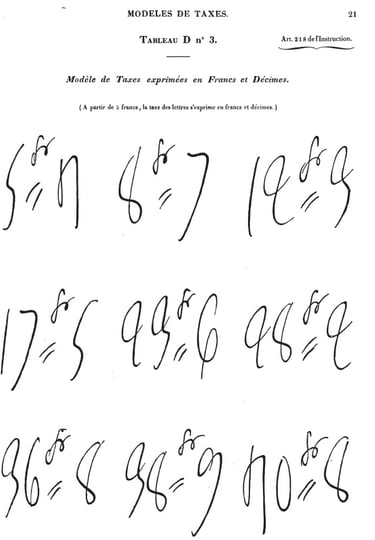 MODELES DE TAXES.
21
TABLEAU D nº 3.
Art. 218 de l'Instruction.
Modèle de Taxes exprimées en Francs et Décimes.
( A partir de 5 francs, la taxe des lettres s'exprime en francs et décimes. )
5 fr 4 8 fr 7 12 fr 3
17 fr 5 23 fr 6 28 fr 2
36 fr 8 38 fr 9 40 fr 8